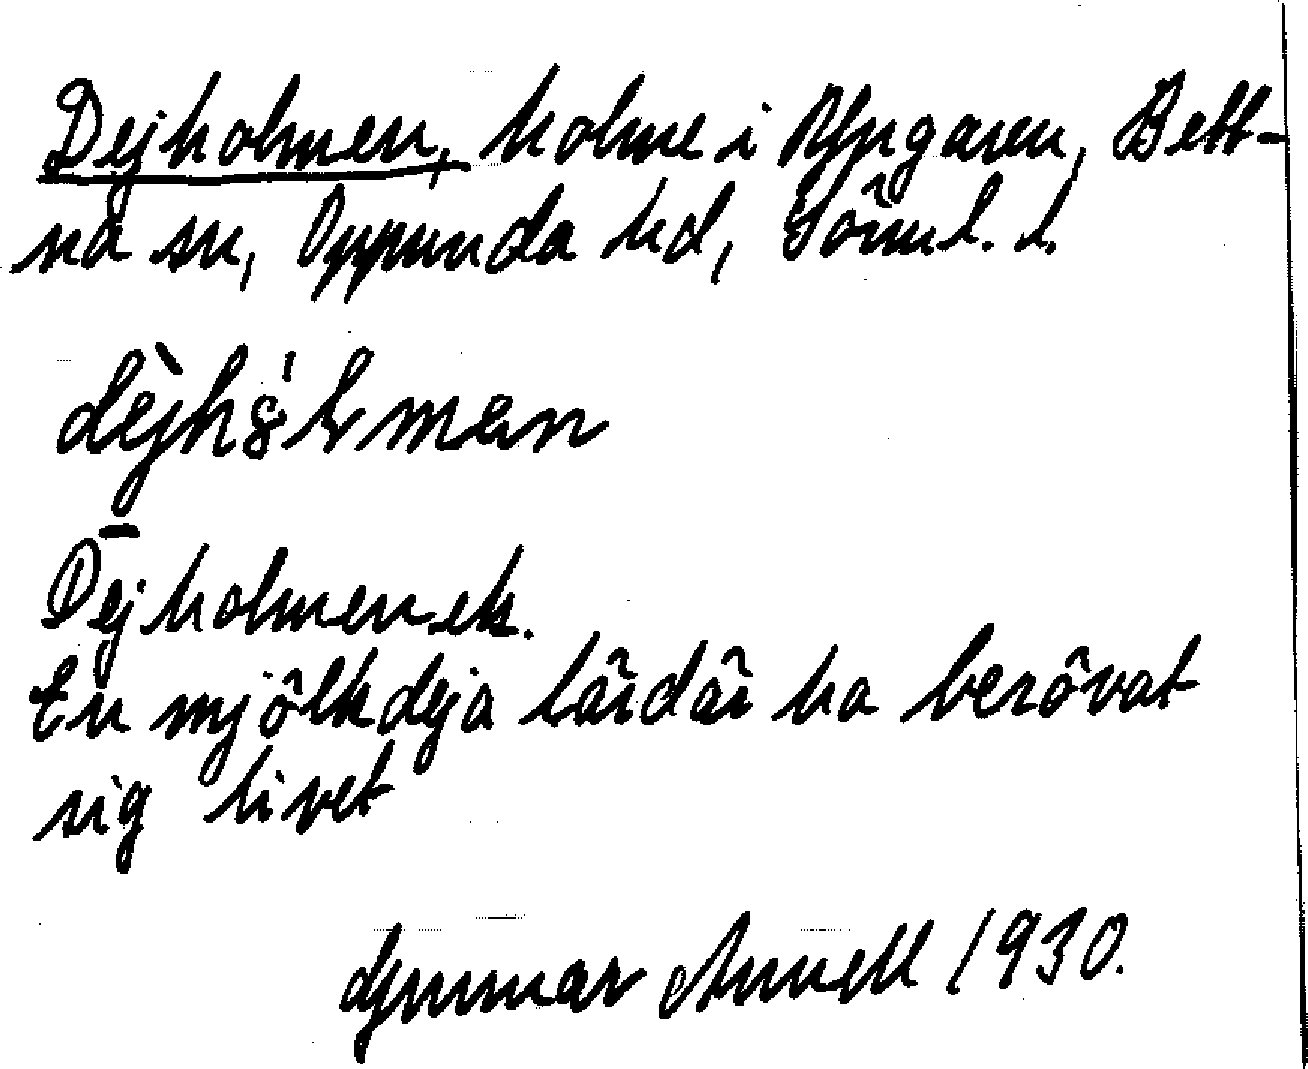 Dejholmen, holme i Yngaren, Bett-
na sn, Oppunda hd, Söml. l.
dèjhɔ̀lmen
Dejholmen ek.
En mjölkdeja lärdär ha berövat
sig livet
Gunnar Anvell 1930.